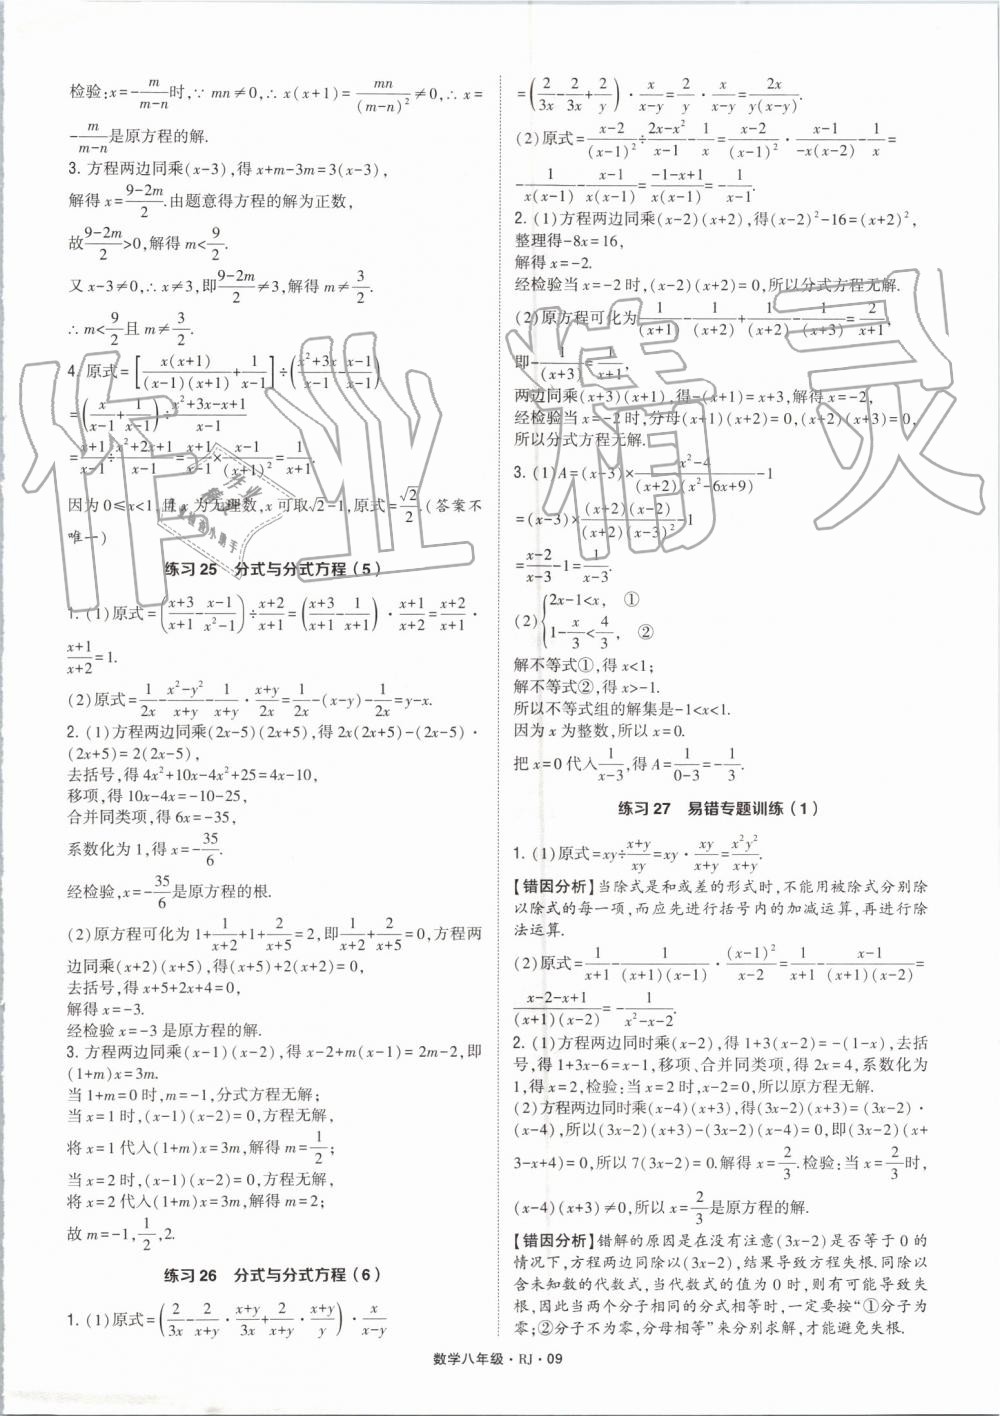 检验:x=-m/(m-n)时,∵ mn≠0,∴ x(x+1)=mn/(m-n)²≠0,∴ x=
-m/(m-n)是原方程的解.
3. 方程两边同乘(x-3),得x+m-3m=3(x-3),
解得x=(9-2m)/2.由题意得方程的解为正数,
故(9-2m)/2>0,解得m<9/2.
又x-3≠0,∴ x≠3,即(9-2m)/2≠3,解得m≠3/2.
∴ m<9/2且m≠3/2.
4. 原式=[x(x+1)/((x-1)(x+1))+1/(x-1)]÷((x²+3x)/(x-1)-(x-1)/(x-1))
=(x/(x-1)+1/(x-1))÷(x²+3x-x+1)/(x-1)
=(x+1)/(x-1)÷(x²+2x+1)/(x-1)=(x+1)/(x-1)×(x-1)/(x+1)²=1/(x+1).
因为0≤x<1,且x为无理数,x可取√2-1,原式=√2/2.(答案不
唯一)
练习25 分式与分式方程(5)
1. (1)原式=((x+3)/(x+1)-(x-1)/(x²-1))÷(x+2)/(x+1)=((x+3)/(x+1)-1/(x+1))·(x+1)/(x+2)=(x+2)/(x+1)·
(x+1)/(x+2)=1.
(2)原式=1/2x-(x²-y²)/(x+y)-1/(x+y)·(x+y)/2x=1/2x-(x-y)-1/2x=y-x.
2. (1)方程两边同乘(2x-5)(2x+5),得2x(2x+5)-(2x-5)·
(2x+5)=2(2x-5),
去括号,得4x²+10x-4x²+25=4x-10,
移项,得10x-4x=-10-25,
合并同类项,得6x=-35,
系数化为1,得x=-35/6.
经检验,x=-35/6是原方程的根.
(2)原方程可化为1+1/(x+2)+1+2/(x+5)=2,即1/(x+2)+2/(x+5)=0,方程两
边同乘(x+2)(x+5),得(x+5)+2(x+2)=0,
去括号,得x+5+2x+4=0,
解得x=-3.
经检验x=-3是原方程的解.
3. 方程两边同乘(x-1)(x-2),得x-2+m(x-1)=2m-2,即
(1+m)x=3m.
当1+m=0时,m=-1,分式方程无解;
当x=1时,(x-1)(x-2)=0,方程无解,
将x=1代入(1+m)x=3m,解得m=1/2;
当x=2时,(x-1)(x-2)=0,方程无解,
将x=2代入(1+m)x=3m,解得m=2;
故m=-1,1/2,2.
练习26 分式与分式方程(6)
1. (1)原式=(2/3x-2/(x+y)·(x+y)/3x+2/(x+y)·(x+y)/y)·x/(x-y)
=(2/3x-2/3x+2/y)·x/(x-y)=2/y·x/(x-y)=2x/(y(x-y)).
(2)原式=(x-2)/(x-1)²÷(2x-x²)/(x-1)-1/x=(x-2)/(x-1)²·(x-1)/(-x(x-2))-1/x=
-1/(x(x-1))-(x-1)/(x(x-1))=(-1-x+1)/(x(x-1))=-1/(x-1).
2. (1)方程两边同乘(x-2)(x+2),得(x-2)²-16=(x+2)²,
整理得-8x=16,
解得x=-2.
经检验当x=-2时,(x-2)(x+2)=0,所以分式方程无解.
(2)原方程可化为1/(x+1)-1/(x+2)+1/(x+2)-1/(x+3)=2/(x+1),
即-1/(x+3)=1/(x+1),
两边同乘(x+3)(x+1),得-(x+1)=x+3,解得x=-2,
经检验当x=-2时,分母(x+1)(x+2)=0,(x+2)(x+3)=0,
所以分式方程无解.
3. (1)A=(x-3)×(x²-4)/((x+2)(x²-6x+9))-1
=(x-3)×(x+2)(x-2)/((x+2)(x-3)²)-1
=(x-2)/(x-3)-1=1/(x-3).
(2){2x-1<x, ①
1-x/3<4/3, ②
解不等式①,得x<1;
解不等式②,得x>-1.
所以不等式组的解集是-1<x<1.
因为x为整数,所以x=0.
把x=0代入1/(x-3),得A=1/(0-3)=-1/3.
练习27 易错专题训练(1)
1. (1)原式=xy÷(x+y)/xy=xy·xy/(x+y)=x²y²/(x+y).
【错因分析】当除式是和或差的形式时,不能用被除式分别除
以除式的每一项,而应先进行括号内的加减运算,再进行除
法运算.
(2)原式=1/(x+1)-1/((x+1)(x-1))·(x-1)²/(x-2)=1/(x+1)-(x-1)/((x+1)(x-2))=
(x-2-x+1)/((x+1)(x-2))=-1/(x²-x-2).
2. (1)方程两边同时乘(x-2),得1+3(x-2)=-(1-x),去括
号,得1+3x-6=x-1,移项、合并同类项,得2x=4,系数化为
1,得x=2,检验:当x=2时,x-2=0,所以原方程无解.
(2)方程两边同时乘(x-4)(x+3),得(3x-2)(x+3)=(3x-2)·
(x-4),所以(3x-2)(x+3)-(3x-2)(x-4)=0,即(3x-2)(x+
3-x+4)=0,所以7(3x-2)=0.解得x=2/3.检验:当x=2/3时,
(x-4)(x+3)≠0,所以x=2/3是原方程的解.
【错因分析】错解的原因是在没有注意(3x-2)是否等于0的
情况下,方程两边同除以(3x-2),结果导致方程失根.同除以
含未知数的代数式,当代数式的值为0时,则有可能导致失
根,因此当两个分子相同的分式相等时,一定要按“①分子为
零;②分子不为零,分母相等”来分别求解,才能避免失根.
数学八年级·RJ·09
作业精灵